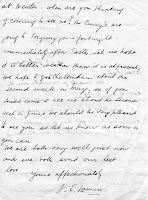 at Easter. When are you thinking
of coming to see us? The
going to Torquay for a fortnight
immediately after Easter, let us hope
it is better weather than it is at present.
We hope to get to about the
second week in May, so if you
could come & see us about the second
week in June we should be very pleased
to see you so let us know as soon as
you can.
We are both very well just now
and we both send our best
love
Yours affectionately